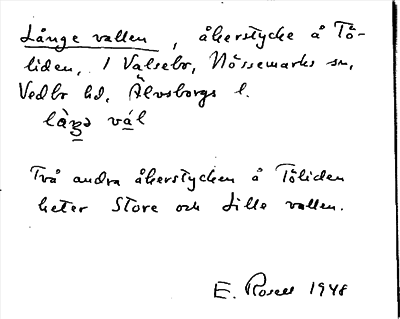 Långe vallen, åkerstycke å Tö-
liden, 1 Valsebo, Nössemarks sn,
Vedbo hd, Älvsborgs l.
Två andra åkerstycken å Töliden
heter Store och Lille vallen.
E. Rosell 1948